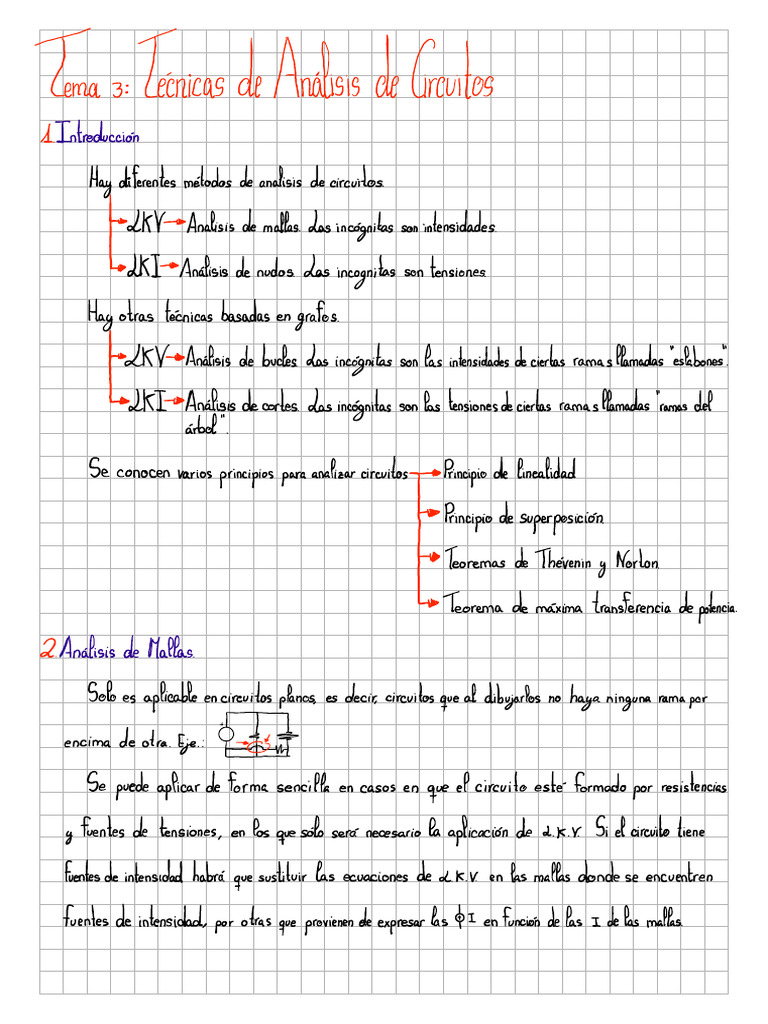 Tema 3: Técnicas de Análisis de Circuitos
1 Introducción
Hay diferentes métodos de analisis de circuitos.
LKV → Analisis de mallas. Las incógnitas son intensidades.
LKI → Análisis de nudos. Las incognitas son tensiones.
Hay otras técnicas basadas en grafos.
LKV → Análisis de bucles. Las incógnitas son las intensidades de ciertas ramas llamadas "eslabones".
LKI → Análisis de cortes. Las incógnitas son las tensiones de ciertas ramas llamadas "ramas del
árbol".
Se conocen varios principios para analizar circuitos → Principio de linealidad
Principio de superposición.
Teoremas de Thévenin y Norton.
Teorema de máxima transferencia de potencia.
2 Análisis de Mallas.
Solo es aplicable en circuitos planos, es decir, circuitos que al dibujarlos no haya ninguna rama por
encima de otra. Eje.:
Se puede aplicar de forma sencilla en casos en que el circuito esté formado por resistencias
y fuentes de tensiones, en los que sólo será necesario la aplicación de L.K.V. Si el circuito tiene
fuentes de intensidad habrá que sustituir las ecuaciones de L.K.V en las mallas donde se encuentren
fuentes de intensidad, por otras que provienen de expresar las ϕI en función de las I de las mallas.